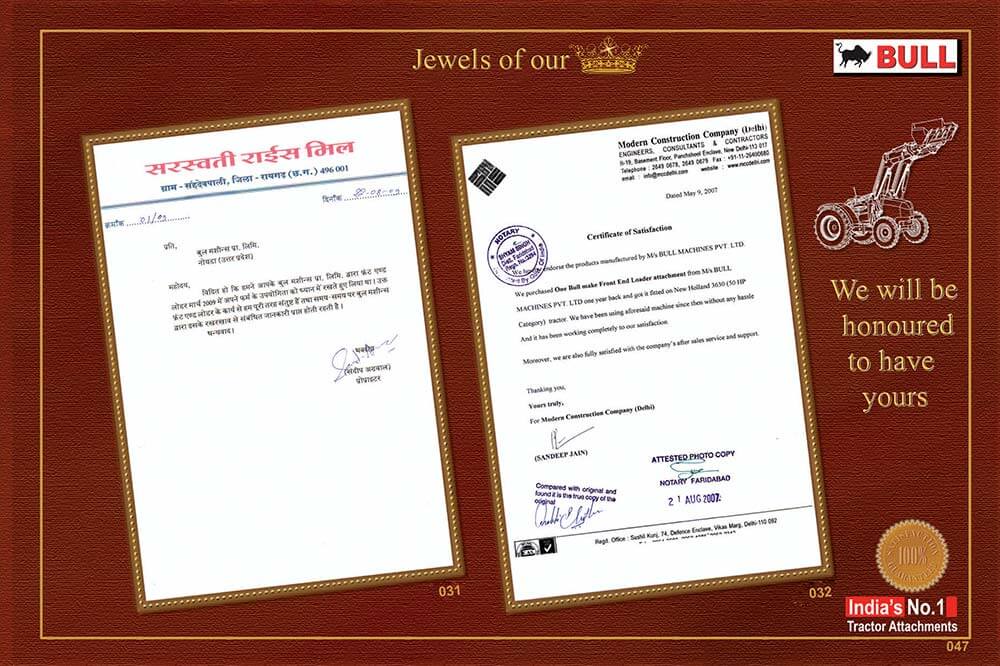 Jewels of our
BULL
सरस्वती राईस मिल
ग्राम - संहदेवपाली, जिला - रायगढ (छ.ग.) 496 001
क्रमाँक
दिनाँक
प्रति,
बुल मशीन्स प्रा. लिमि.
नोयडा (उत्तर प्रदेश)
महोदय,
विदित हो कि हमने आपके बुल मशीन्स प्रा. लिमि. द्वारा फ्रंट एण्ड
लोडर मार्च 2009 में अपने फर्म के उपयोगिता को ध्यान में रखते हुए लिया था। उक्त
फ्रंट एण्ड लोडर के कार्य से हम पूरी तरह संतुष्ट हैं तथा समय-समय पर बुल मशीन्स
द्वारा इसके रखरखाव से संबंधित जानकारी प्राप्त होती रहती है।
धन्यवाद।
भवदीय
(संदीप अग्रवाल)
प्रोप्राइटर
031
Modern Construction Company (Delhi)
ENGINEERS, CONSULTANTS & CONTRACTORS
II-19, Basement Floor, Panchsheel Enclave, New Delhi-110 017
Telephone : 2649 0678, 2649 0679 Fax : +91-11-26490680
email : info@mccdelhi.com website : www.mccdelhi.com
Dated May 9, 2007
Certificate of Satisfaction
NOTARY
SHYAM SINGH
Distt. Faridabad
Govt. Of India
We endorse the products manufactured by M/s BULL MACHINES PVT. LTD.
We purchased One Bull make Front End Loader attachment from M/s BULL
MACHINES PVT. LTD one year back and got it fitted on New Holland 3630 (50 HP
Category) tractor. We have been using aforesaid machine since then without any hassle
And it has been working completely to our satisfaction.
Moreover, we are also fully satisfied with the company's after sales service and support.
Thanking you,
Yours truly,
For Modern Construction Company (Delhi)
(SANDEEP JAIN)
ATTESTED PHOTO COPY
NOTARY FARIDABAD
21 AUG 2007
Compared with original and
found it is the true copy of the
original
Regd. Office : Sushil Kunj, 74, Defence Enclave, Vikas Marg, Delhi-110 092
032
We will be
honoured
to have
yours
SATISFACTION
100%
GUARANTEE
India's No.1
Tractor Attachments
047